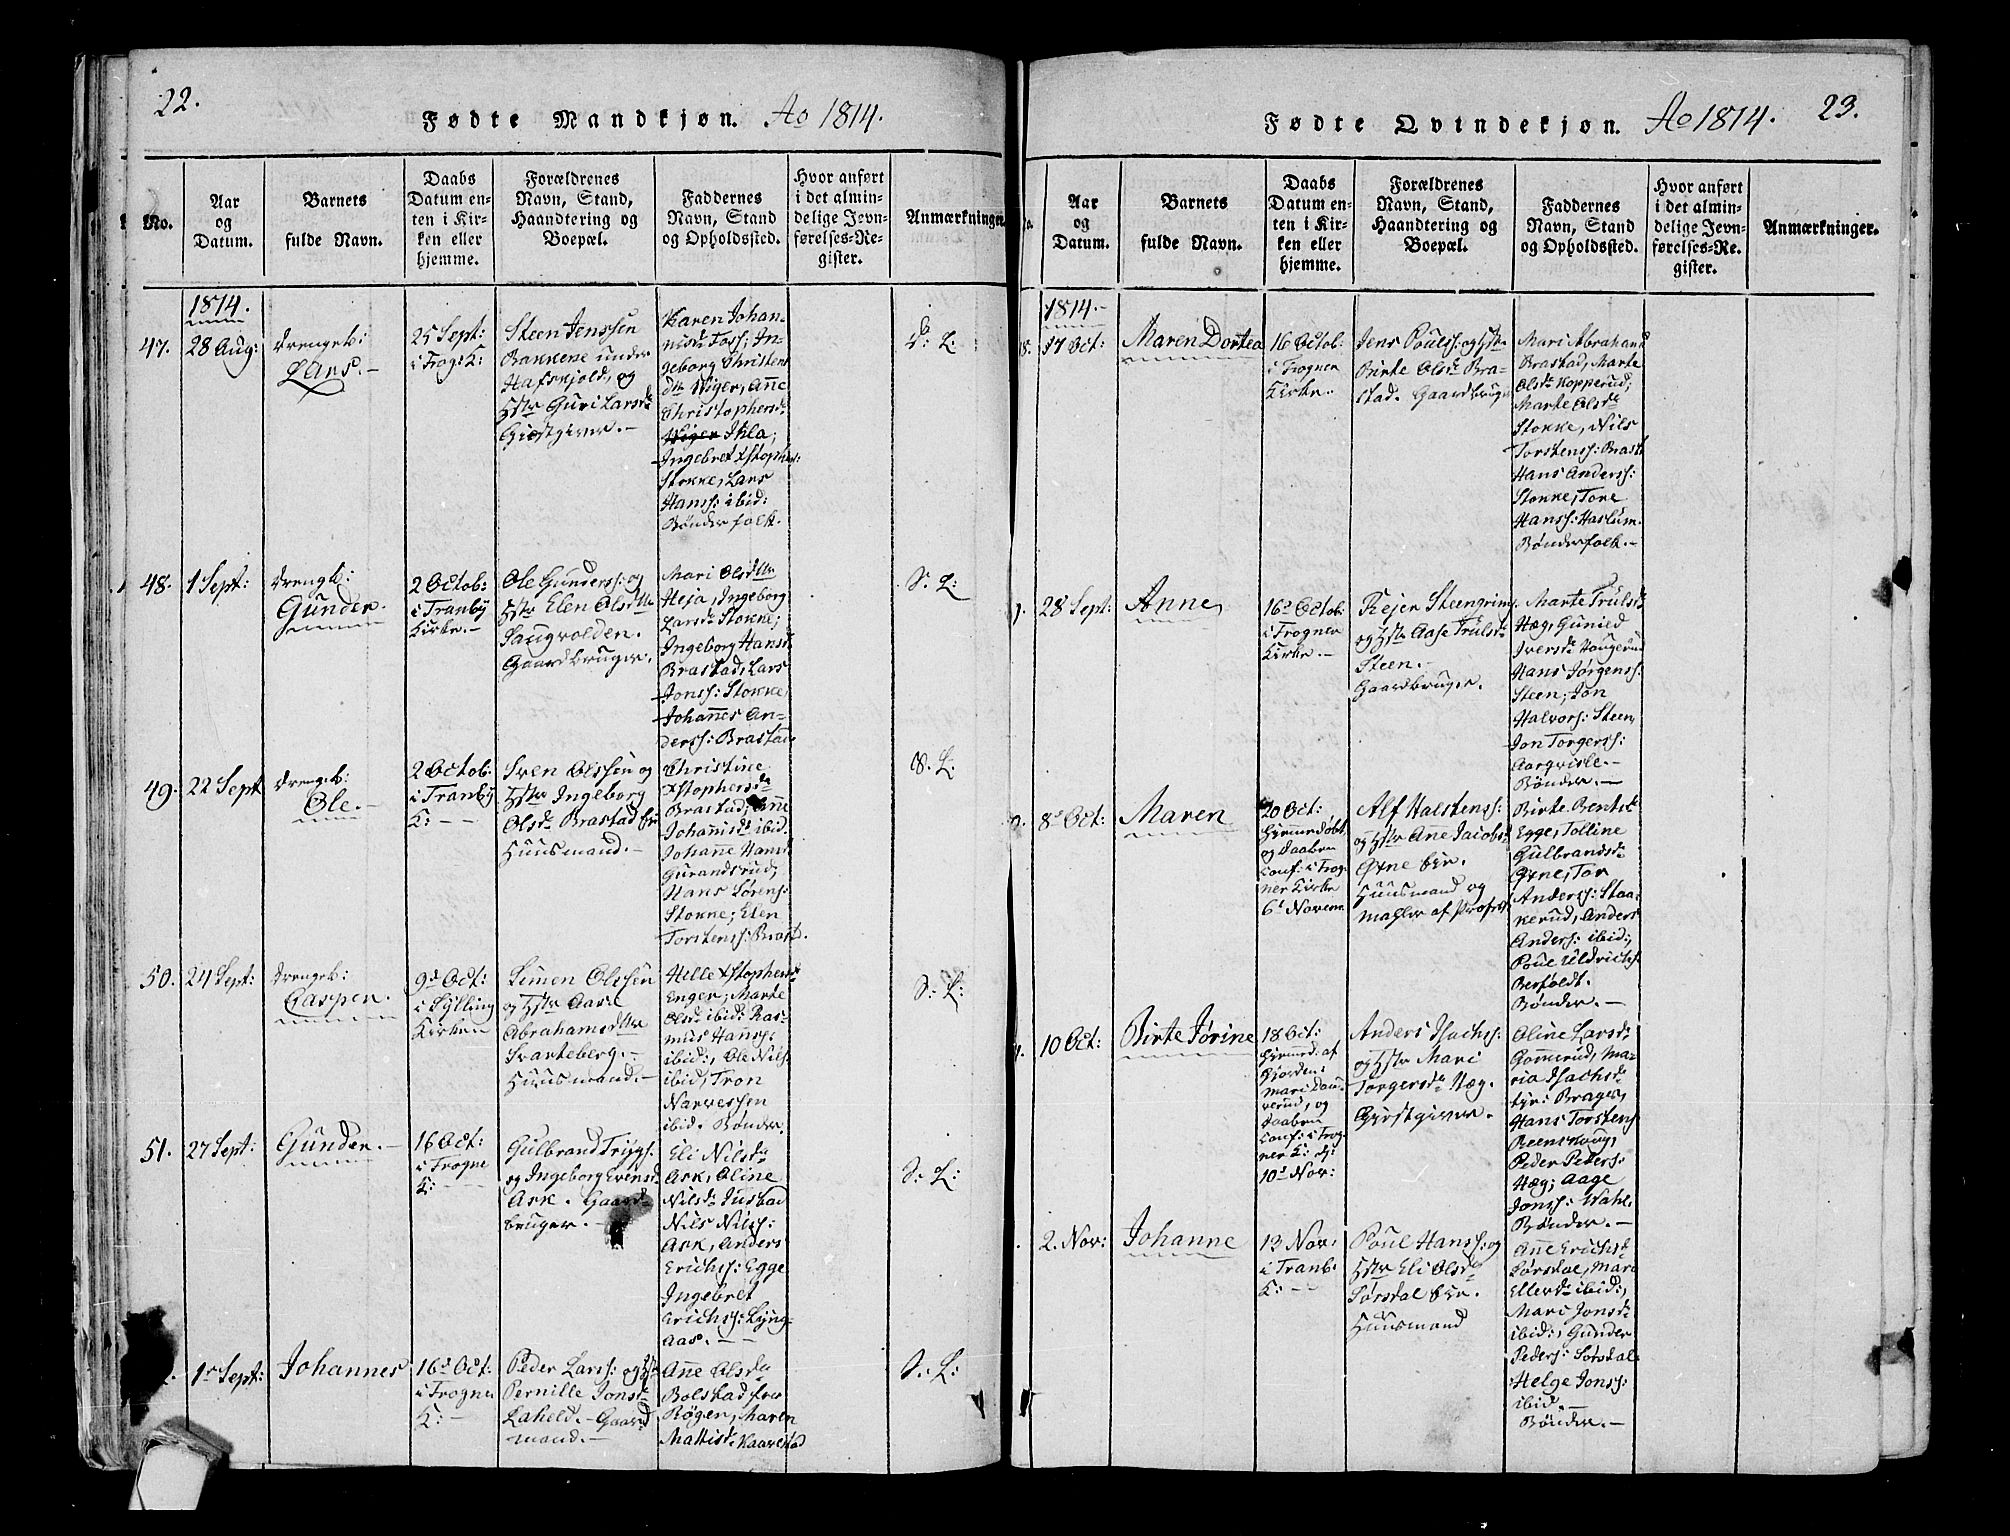 22.
Fødte Mandkjøn. Ao 1814.
No.
Aar
og
Datum.
Barnets
fulde Navn.
Daabs
Datum en-
ten i Kir-
ken eller
hjemme.
Forældrenes
Navn, Stand,
Haandtering og
Boepæl.
Faddernes
Navn, Stand
og Opholdssted.
Hvor anført
i det almin-
delige Jevn-
førelses-Re-
gister.
Anmærkninger.
1814.
47.
28 Aug:
Drengeb:
Lars. –
25 Sept:
i Frog: K:
Steen Jenssen
Bakkene under
Hafskjold, og
Hstr Guri Larsdr
Giestgiver. –
Karen Johan-
nisdr Foss; In-
geborg Christens
dtr Viger, Ane
Christophersdr
Viger Ihla;
Ingebret Xstophers:
Stokke, Lars
Hanss: ibid:
Bønderfolk.
D: L:
48.
1 Sept:
Drengb:
Gunder.
2 Octob:
i Tranby
Kirke. –
Ole Gunderss: og
Hstr Elen Olsdtr
Saugvolden.
Gaardbruger.
Mari Olsdtr
Heja, Ingeborg
Larsdr Stokke;
Ingeborg Hansd
Brastad, Lars
Jonss: Stokke,
Johannes An-
derss: Brastad
S. L:
49.
22 Sept
Drengeb:
Ole. –
2 Octob:
i Tranby
K: – –
Sven Olssen og
Hstr Ingeborg
Olsdr Brastad Eie
Huusmand. –
Christine
Xstophersdr
Brastad, Ane
Johannisdr ibid.
Johanne Hans
Gurandsrud;
Hans Sørens:
Stokke; Elen
Torstenss: Brast.
S. L.
50.
24 Sept:
Drengeb:
Casper.
9de Oct:
i Sylling
Kirken
Simen Olssen
og Hstr Aase
Abrahamsdtr
Svarteberg. –
Huusmand. –
Helle Xstophersdr
Enger; Marte
Olsdr ibid: Ras-
mus Hanss:
ibid:, Ole Nils:
ibid, Tron
Narvessen
ibid. Bønder.
S: L:
51.
27 Sept:
Gunder. –
16 Oct:
i Frogne
K: –
Gulbrand Trygs.
og Ingeborg Evensd
Ask. Gaard-
bruger. –
Eli Nilsdr
Ask, Oline
Nilsdr Justad
Nils Nilss:
Ask, Anders
Erichss: Egge
Ingebret
Erichss: Lyng-
aas. –
S: L:
1r Sept:
Johannes
16de Oct:
i Frogne
K: –
Peder Larss: og
Pernille Jonsdr
Laheld. – Gaard
mand. –
Ane Olsdr
Bolstad fra
Røgen, Maren
Mattisdr Kaarestad
S: L:
Fødte Qvindekjøn. Ao 1814. 23.
Aar
og
Datum.
Barnets
fulde Navn.
Daabs
Datum en-
ten i Kir-
ken eller
hjemme.
Forældrenes
Navn, Stand,
Haandtering og
Boepæl.
Faddernes
Navn, Stand
og Opholdssted.
Hvor anført
i det almin-
delige Jevn-
førelses-Re-
gister.
Anmærkninger.
1814. –
17 Oct:
Maren Dortea
16 Octob:
i Frogner
Kirke.
Jens Poulss: og Hstr
Birte Olsdr Bra-
stad. Gaardbruger
Mari Abrahams
Brastad, Marte
Olsdr Kopperud;
Marte Olsdr
Stokke, Nils
Torstenss: Brast
Hans Anderss:
Stokke, Tore
Hanss: Haslum.
Bønderfolk. –
28 Sept:
Anne,
16de Octob:
i Frogner
Kirke. –
Rejer Steengrims.
og Hstr Aase Trulsdr
Steen. –
Gaardbruger.
Marte Trulsdr
Hæg, Gunild
Iversdr Haugerud
Hans Jørgenss:
Steen, Jon
Halvors: Steen,
Jon Torgerss:
Aarqvisle.
Bønder. –
8de Oct:
Maren
20 Oct:
Hjemmedøbt
og Daaben
conf: i Frog
ner Kirke
6te Novem
Alf Halstenss:
og Hstr Ane Jacobsdr
Øxne Eie.
Huusmand og
Mahler af Profess:
Birte Bentsdr
Egge, Tolline
Gulbrandsdr
Øxne, Tor
Anderss: Staa-
kerud, Anders
Anders: ibid:,
Poul Uldrichs:
Berfoldt.
Bønder. –
10 Oct:
Birte Jørine
18 Oct:
Hjemmed: af
Giorden:
Mari Dam-
verud, og
Daaben
conf: i Frog-
ner K: d:
10de Nov:
Anders Isachss:
og Hstr Mari
Torgersdr Hæg.
Giestgiver.
Oline Larsdr
Gomerud, Ma-
ria Isachsdr
tyr: Brager,
Hans Torstens:
Reenskoug,
Peder Peders:
Hæg; Aage
Jonss: Wahl.
Bønder. –
2. Nov:
Johanne
13 Nov:
i Tranb:
K: – –
Poul Hanss: og
Hstr Eli Olsdr
Sørsdal Eie.
Huusmand
Ane Erichsdr
Sørsdal, Mari
Ellersdr ibid:,
Mari Jonsdr
ibid:, Gunder
Peders: Sørsdal
Helge Jonss:
ibid.
Bønder. –